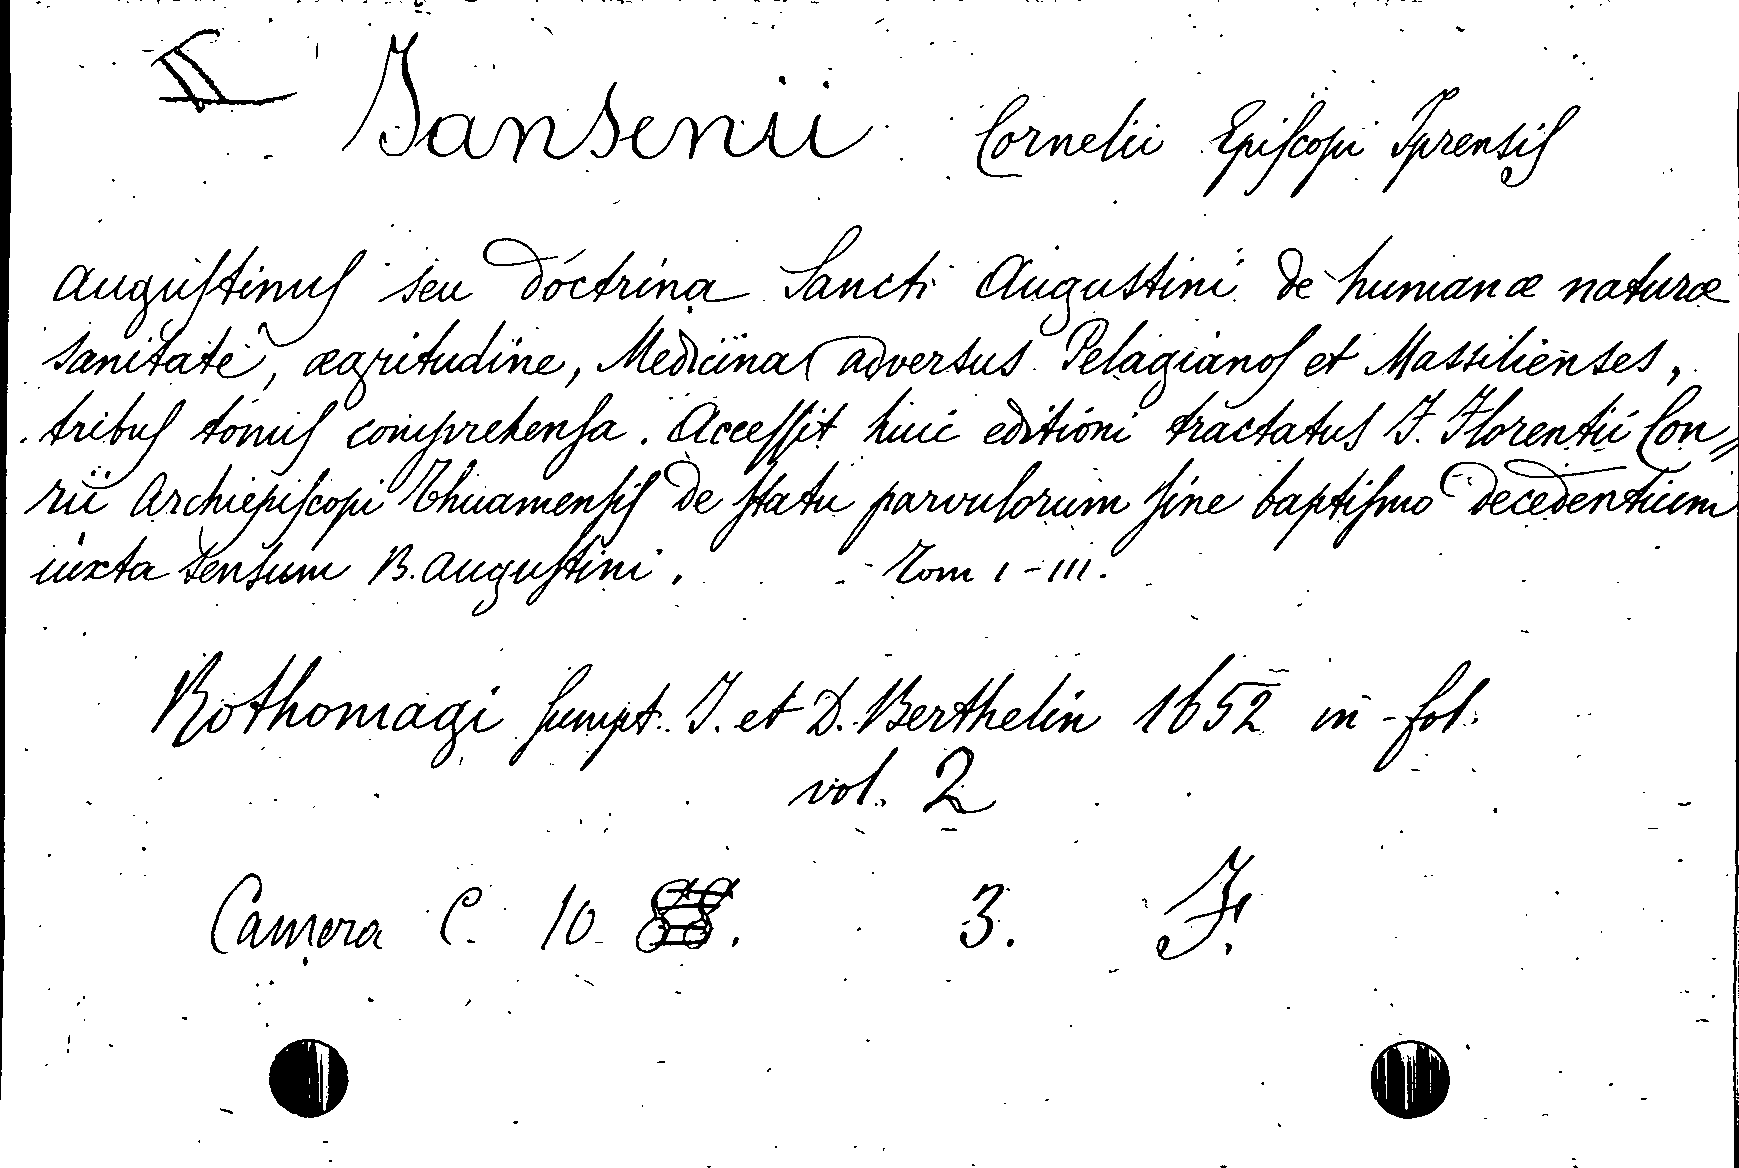 Jansenii Cornelii Episcopi Iprensis
Augustinus seu doctrina Sancti Augustini de humanæ naturæ
sanitate, ægritudine, Medicina adversus Pelagianos et Massilienses,
tribus tomis comprehensa. Accessit huic editioni tractatus F. Florentii Con„
rii Archiepiscopi Thuamensis de statu parvulorum sine baptismo decedentium
iuxta sensum B. Augustini. Tom I-III.
Rothomagi sumpt. J. et D. Berthelin 1652 in-fol.
vol. 2
Camera C. 10. 3. F.